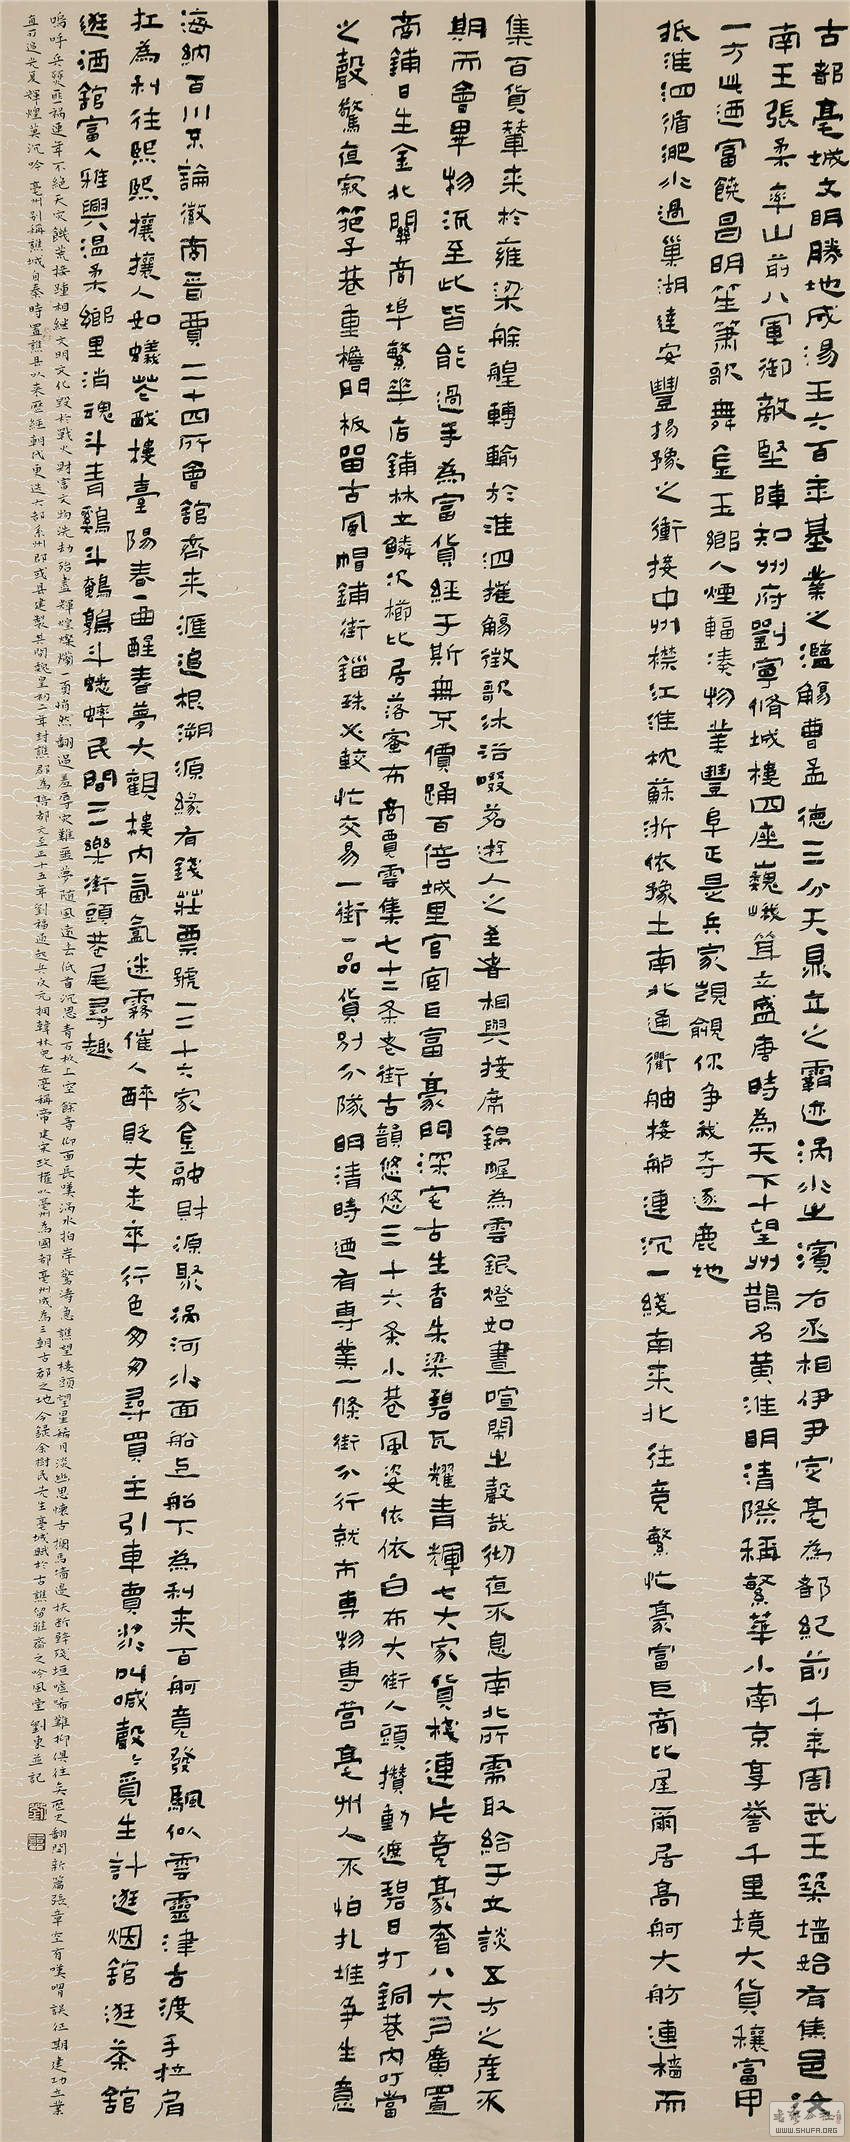 古都亳城文明勝地成湯王六百年基業之濫觴曹孟德三分天鼎立之霸迹渦水之濱右丞相伊尹定亳為都紀前千年周武王築墻始有焦邑汝
南王張柔率山前八軍御敵堅陣知州府劉寧脩城樓四座巍峨聳立盛唐時為天下十望州鵲名黃淮明清際稱繁華小南京享譽千里境大貨穰富甲
一方此迺富饒昌明笙簫歌舞金玉鄉人煙輻湊物業豐阜正是兵家覬覦你争我夺逐鹿地
抵淮泗循淝水過巢湖達安豐揚豫之衝接中州襟江淮枕蘇浙依豫土南北通衢舳接舻連沉一綫南来北往竟繁忙豪富巨商比屋爾居高舸大舫連檣而
集百貨輦来於雍梁艅艎轉輸於淮泗摧觴徵歌沐浴啜茗遊人之至者相與接席錦幄為雲銀橙如晝喧鬧之聲哉彻夜不息南北所需取給于立談五方之産不
期而會畢物流至此皆能過手為富貨經于斯無不價踊百倍城里官宦巨富豪門深宅古生香朱梁碧瓦耀青輝七大家貨棧連片竞豪奢八大弓廣置
商鋪日生金北關商埠繁華店鋪林立鱗次櫛比居落蜜布商賈雲集七十二条老街古韻悠悠三十六条小巷風姿依依白布大街人頭攢動遮碧日打銅巷内叮當
之聲驚夜寂笆子巷重樽門板留古風帽鋪街錙珠必較忙交易一街一品貨別分隊明清時迺有専業一條街分行就市専物専营亳州人不怕扎堆争生意
海納百川不論徽商晉賈二十四所會舘齊来滙追根溯源緣有錢莊票號二十六家金融財源聚渦河水面船上船下為利来百舸竟發颿似雲靈津古渡手拉肩
扛為利往熙熙攘攘人如蟻花戲樓臺陽春一曲醒春夢大觀樓内氤氳迷霧催人醉販夫走卒行色匆匆尋買主引車賣漿叫喊聲聲覓生計逛烟舘逛茶舘
逛酒舘富人雅興温柔鄉里消魂斗青鷄斗鵪鶉斗蟋蟀民間三樂街頭巷尾尋趣
嗚呼兵燹匪禍連年不絶天灾饑荒接踵相繼文明文化毀於戰火財富文物洗劫殆盡輝煌燦爛一頁悄然翻過羞辱灾難噩夢隨風遠去低首沉思青石板上空餘音仰面長嘆渦水拍岸驚濤急譙望樓頭望星皓月淡幽思懷古攔馬墻邊扶斷磚殘垣喧啼難抑俱往矣歷史翻開新篇張章空有嘆喟誤任期建功立業
直可追光夏輝煌莫沉吟 亳州别稱譙城自秦時置譙县以来歷經朝代更迭六都系州郡或县建製其間魏皇初二年封譙郡為陪都元至正十五年劉福通起兵反元拥韓林兒在亳稱帝建宋政權以亳州為國都亳州成為三朝古都之地今録余樹民先生亳城賦於古譙留雅齋之吟風堂劉東並記
WWW.SHUFA.ORG